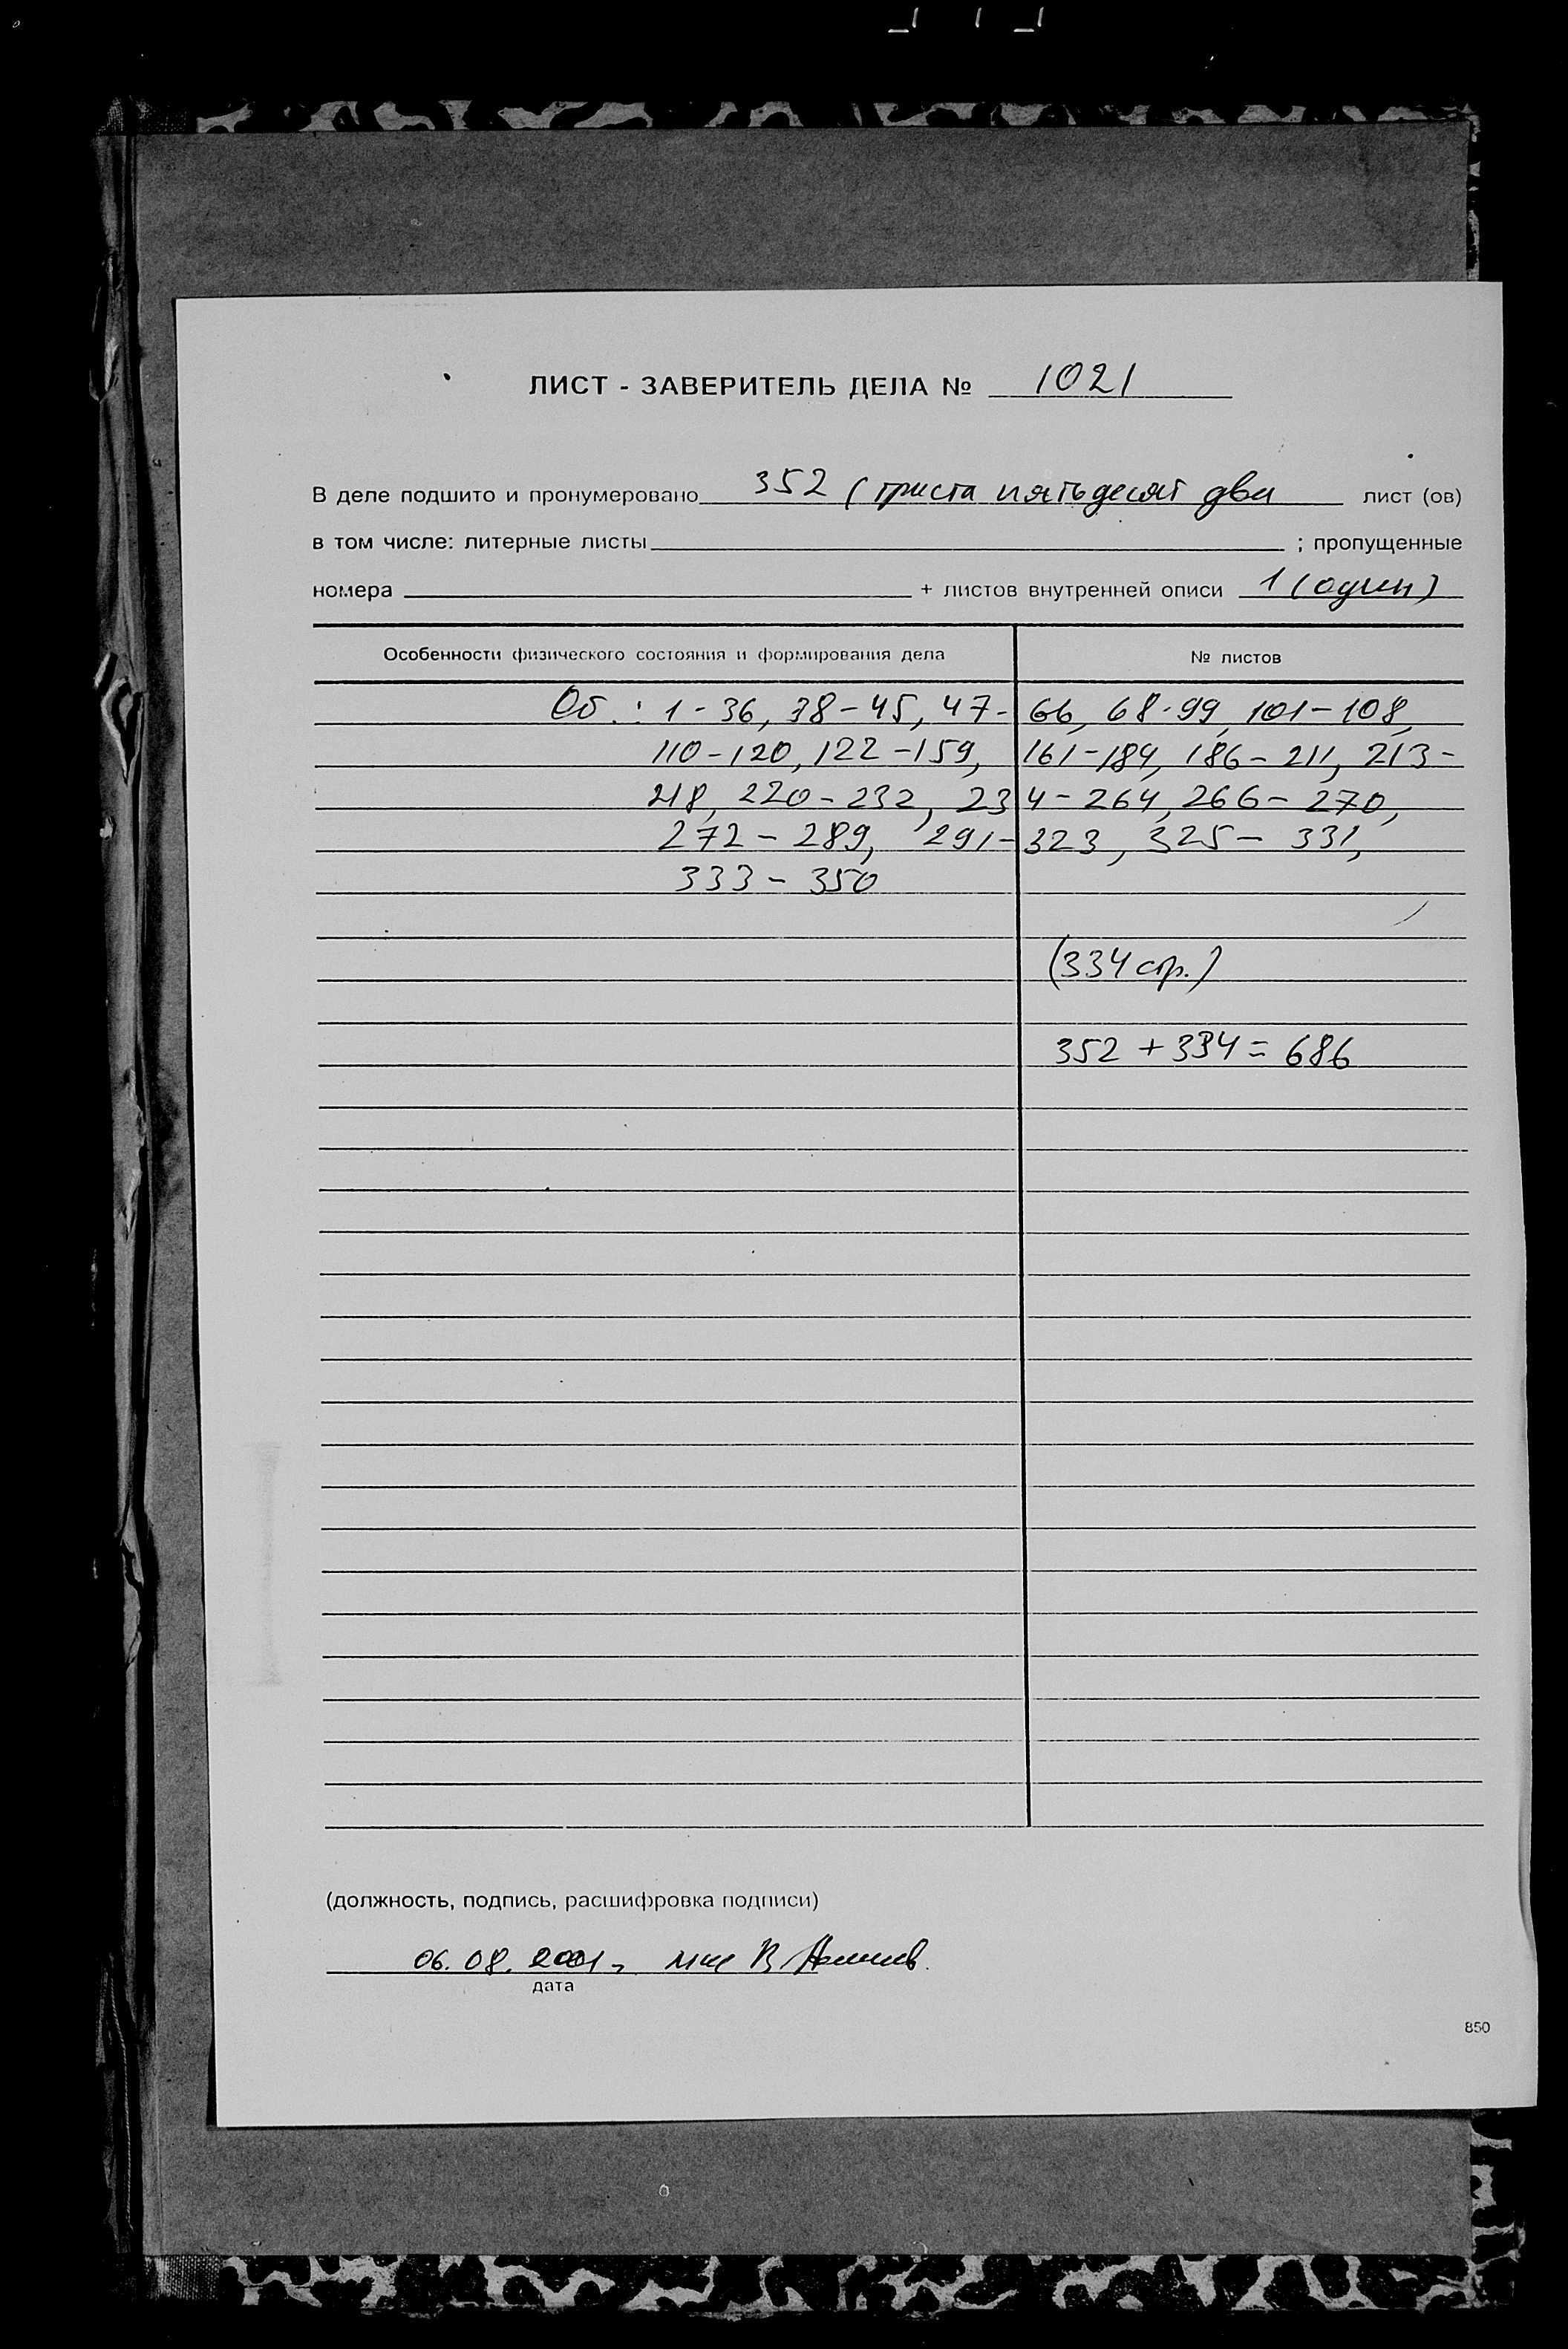 ЛИСТ - ЗАВЕРИТЕЛЬ ДЕЛА № 1021
В деле подшито и пронумеровано 352 (триста пятьдесят два лист (ов)
в том числе: литерные листы ; пропущенные
номера + листов внутренней описи 1 (один)
Особенности физического состояния и формирования дела № листов
Об.: 1-36, 38-45, 47-66, 68-99, 101-108,
110-120, 122-159, 161-184, 186-211, 213-
218, 220-232, 234-264, 266-270,
272-289, 291-323, 325-331,
333-350
(334 стр.)
352 + 334 = 686
(должность, подпись, расшифровка подписи)
06.08.2001
дата
850